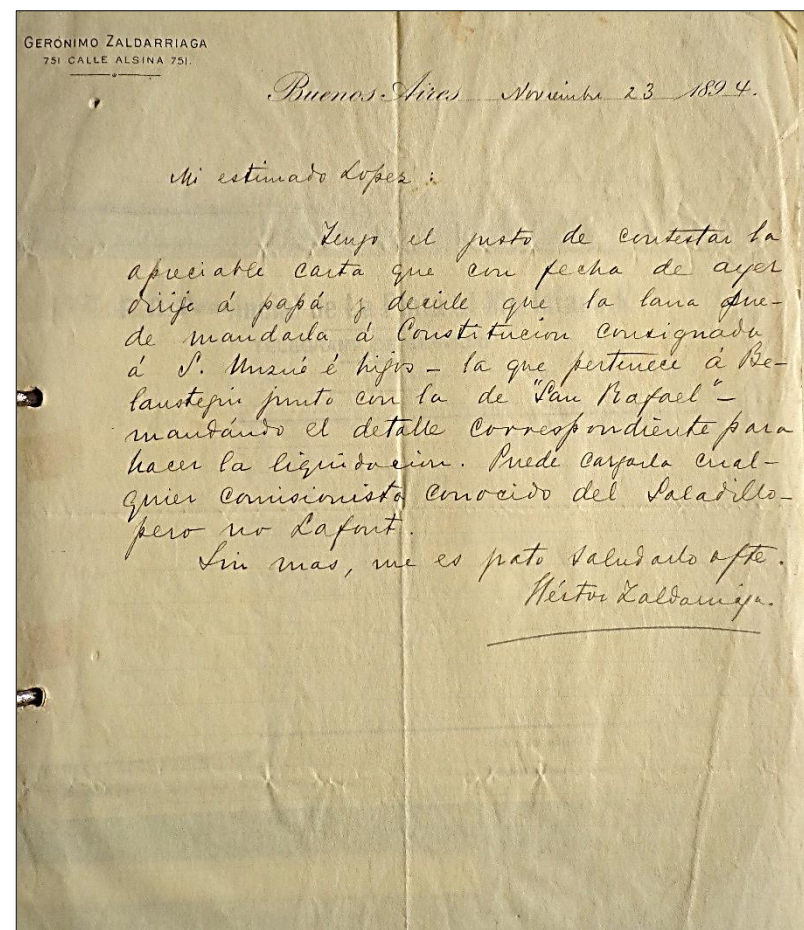 GERÓNIMO ZALDARRIAGA
751 CALLE ALSINA 751.
Buenos Aires Noviembre 23 1894.
Mi estimado Lopez :
Tengo el gusto de contestar la
apreciable carta que con fecha de ayer
dirije á papá y decirle que la lana pue-
de mandarla á Constitucion consignada
á S. Unzué é hijos – la que pertenece á Be-
laustegui junto con la de "San Rafael" –
mandándo el detalle correspondiente para
hacer la liquidacion. Puede cargarla cual-
quier comisionista conocido del Saladillo –
pero no Lafont.
Sin mas, me es grato saludarlo afte.
Héctor Zaldarriaga.